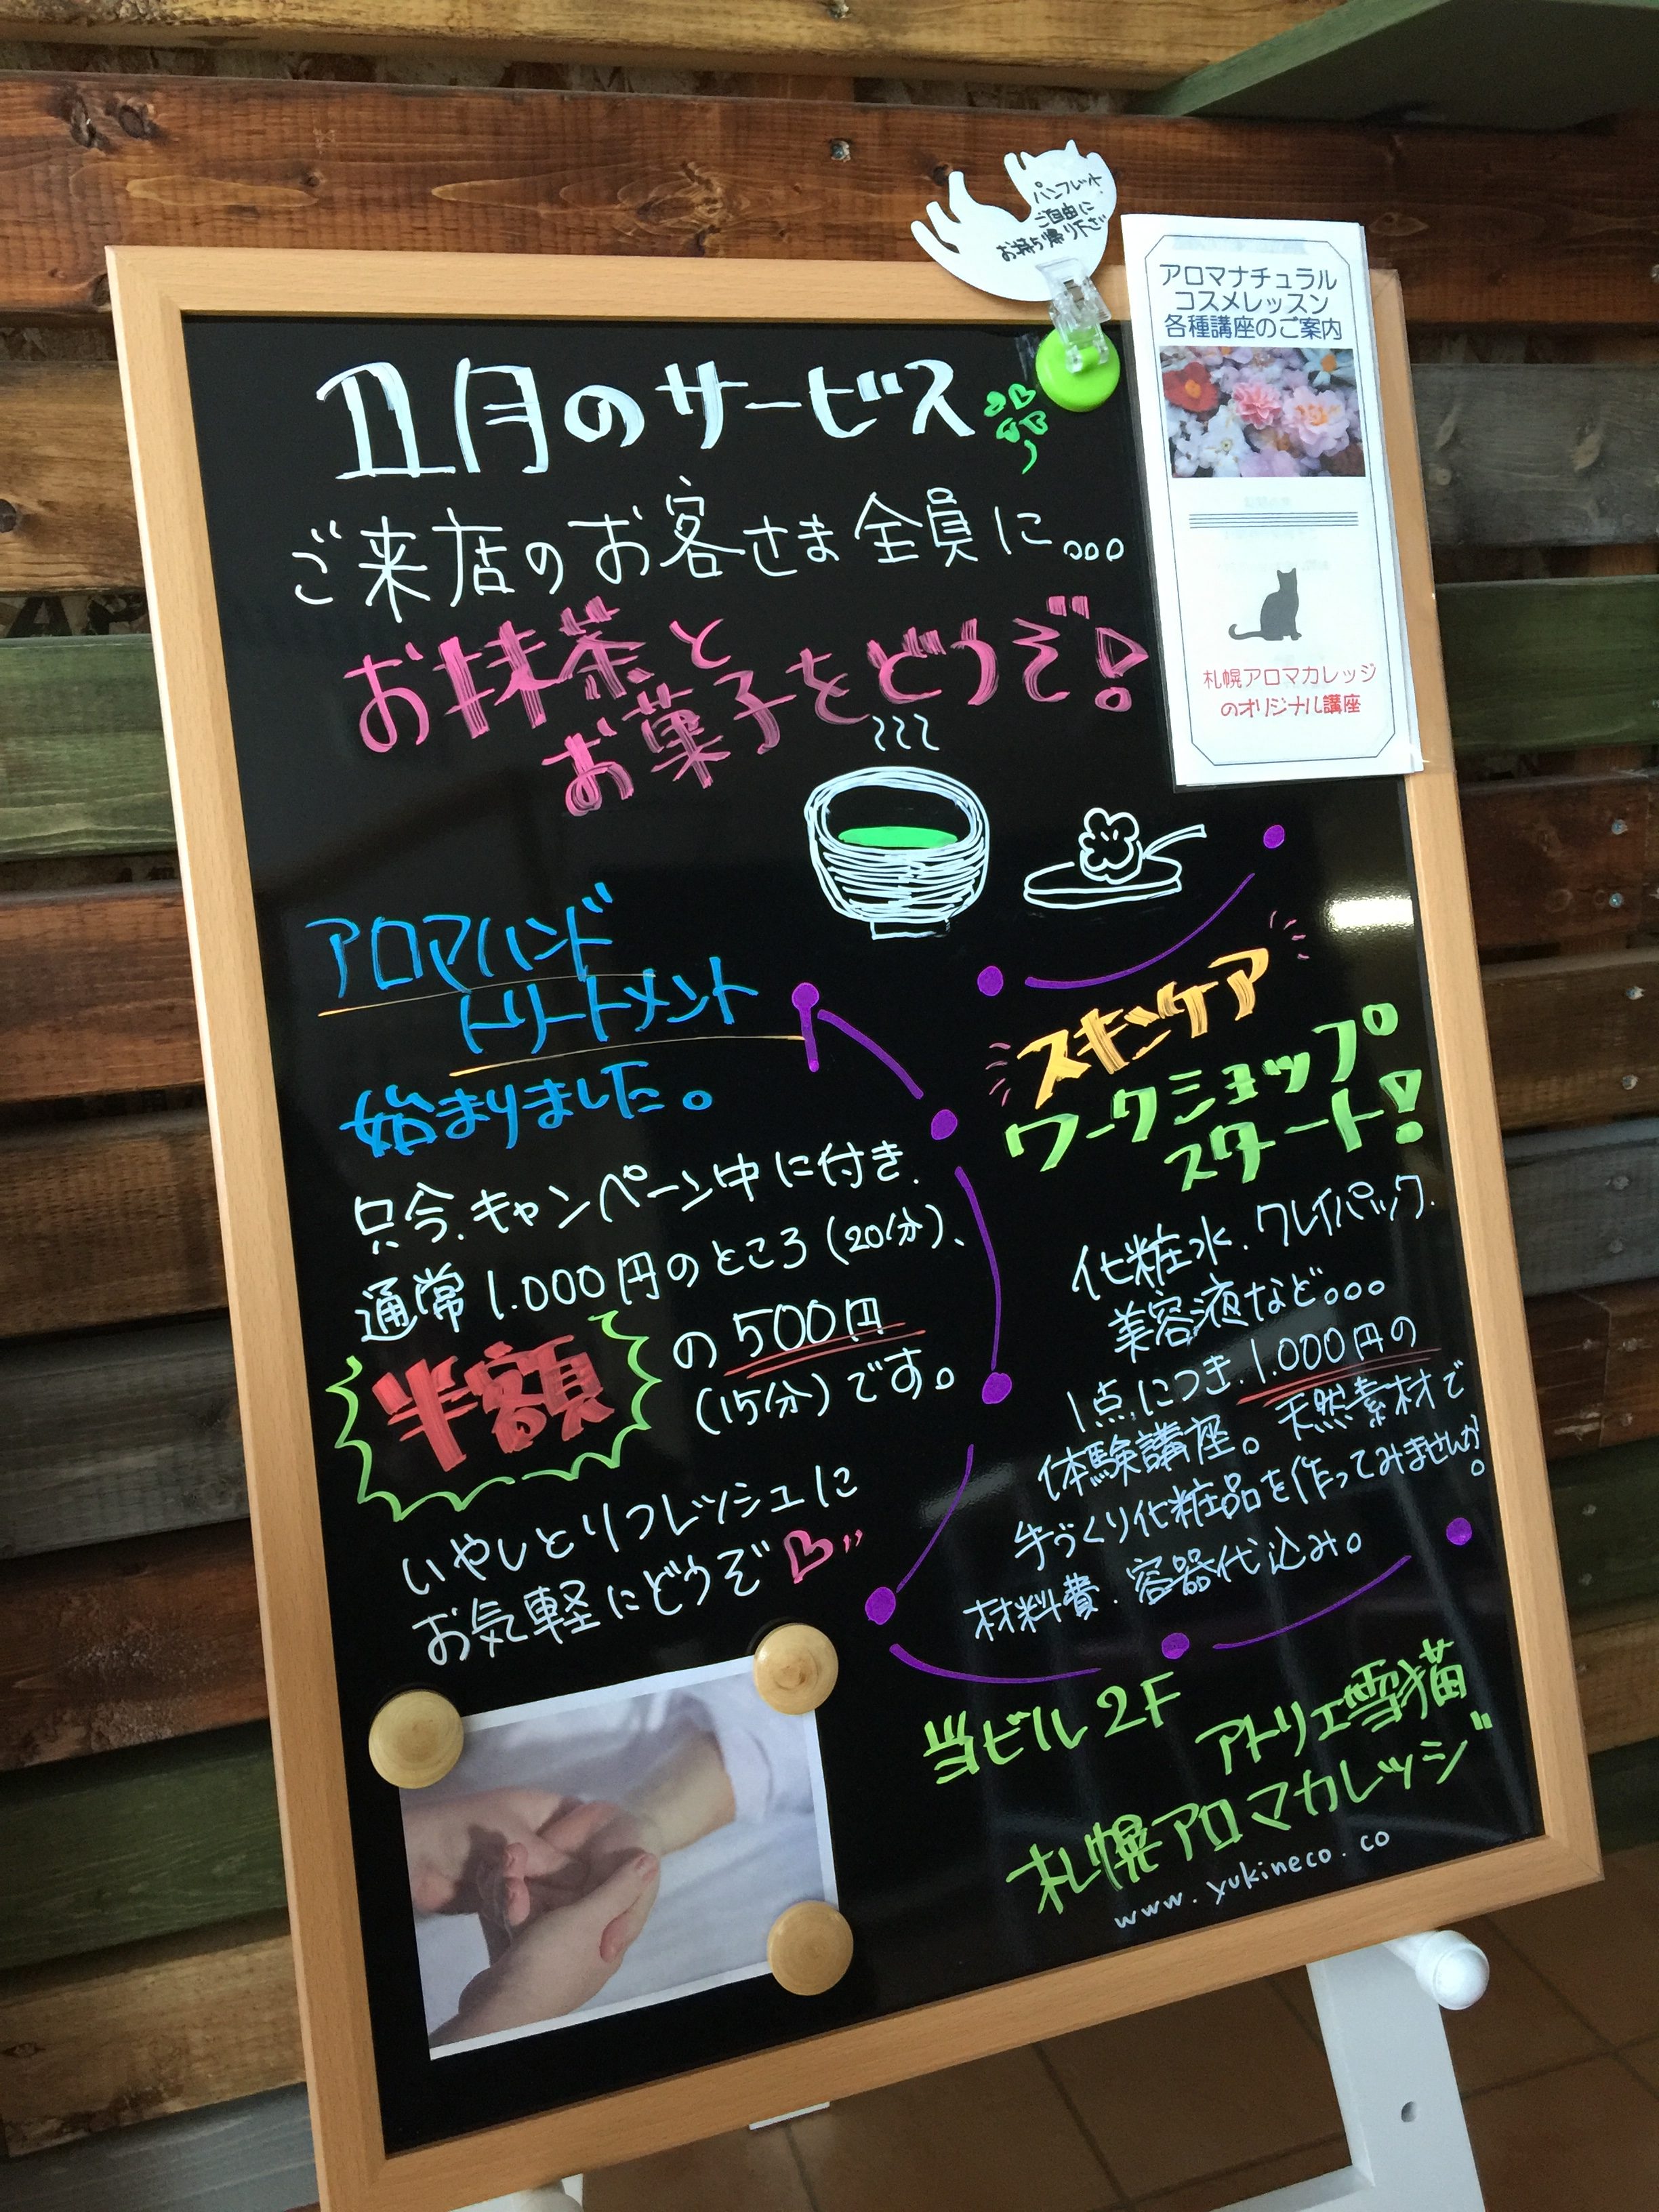 11月のサービス
ご来店のお客さま全員に。。。
お抹茶と
お菓子をどうぞ!
アロマハンド
トリートメント
始まりました。
只今、キャンペーン中に付き、
通常1.000円のところ(20分)、
半額
の500円
(15分)です。
いやしとリフレッシュに
お気軽にどうぞ
スキンケア
ワークショップ
スタート!
化粧水、クレイパック、
美容液など。。。
1点につき、1.000円の
体験講座。天然素材で
手づくり化粧品を作ってみませんか。
材料費、容器代込み。
当ビル2F
アトリエ雪猫
札幌アロマカレッジ
www.yukineco.co
パンフレット
ご自由に
お持ち帰り下さい
アロマナチュラル
コスメレッスン
各種講座のご案内
札幌アロマカレッジ
のオリジナル講座